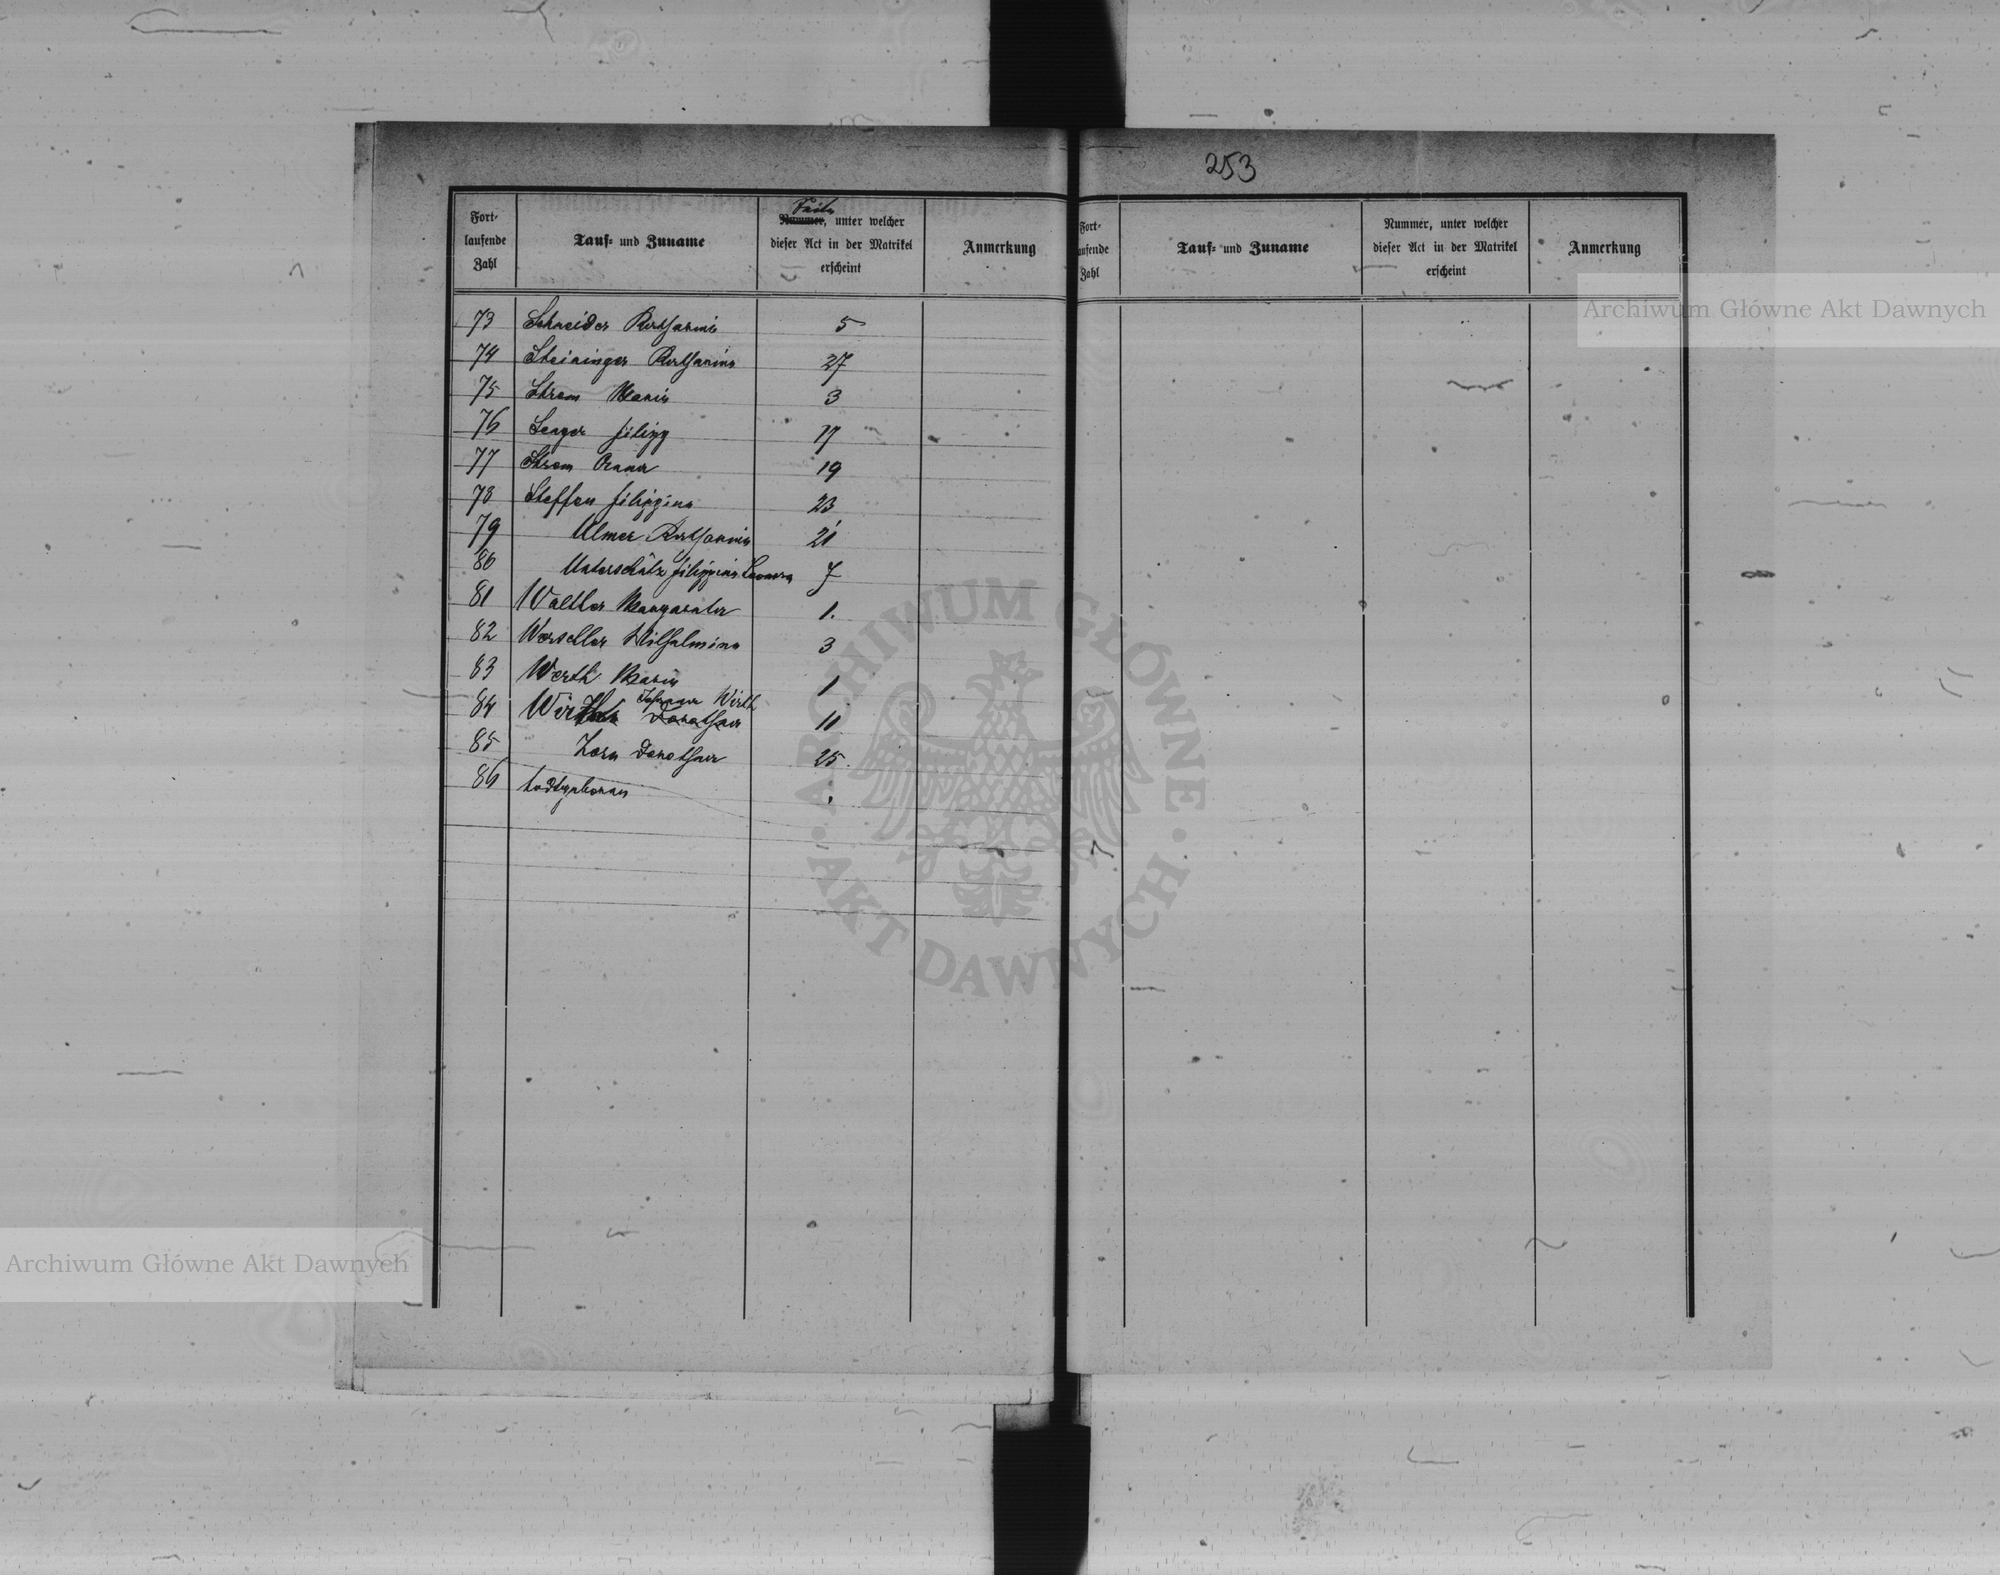 253
Fort-
laufende
Zahl
Tauf- und Zuname
Seite
Nummer, unter welcher
dieser Act in der Matrikel
erscheint
Anmerkung
Fort-
aufende
Zahl
Tauf- und Zuname
Nummer, unter welcher
dieser Act in der Matrikel
erscheint
Anmerkung
73 Schneider Katharina 5
74 Steininger Katharina 27
75 Strom Maria 3
76 Senger Filipp 17
77 Strom Anna 19
78 Steffen Filippina 23
79 Ulmer Katharina 21
80 Unterschütz Filippina 7
81 Walther Margaretha 1.
82 Werschler Wilhelmina 3
83 Werth Maria 1
Johann Wirth
84 Dorothea 11
85 Zorn Dorothea 25.
86 todtgeboren
Archiwum Główne Akt Dawnych
Archiwum Główne Akt Dawnych
ARCHIWUM GŁÓWNE
AKT DAWNYCH